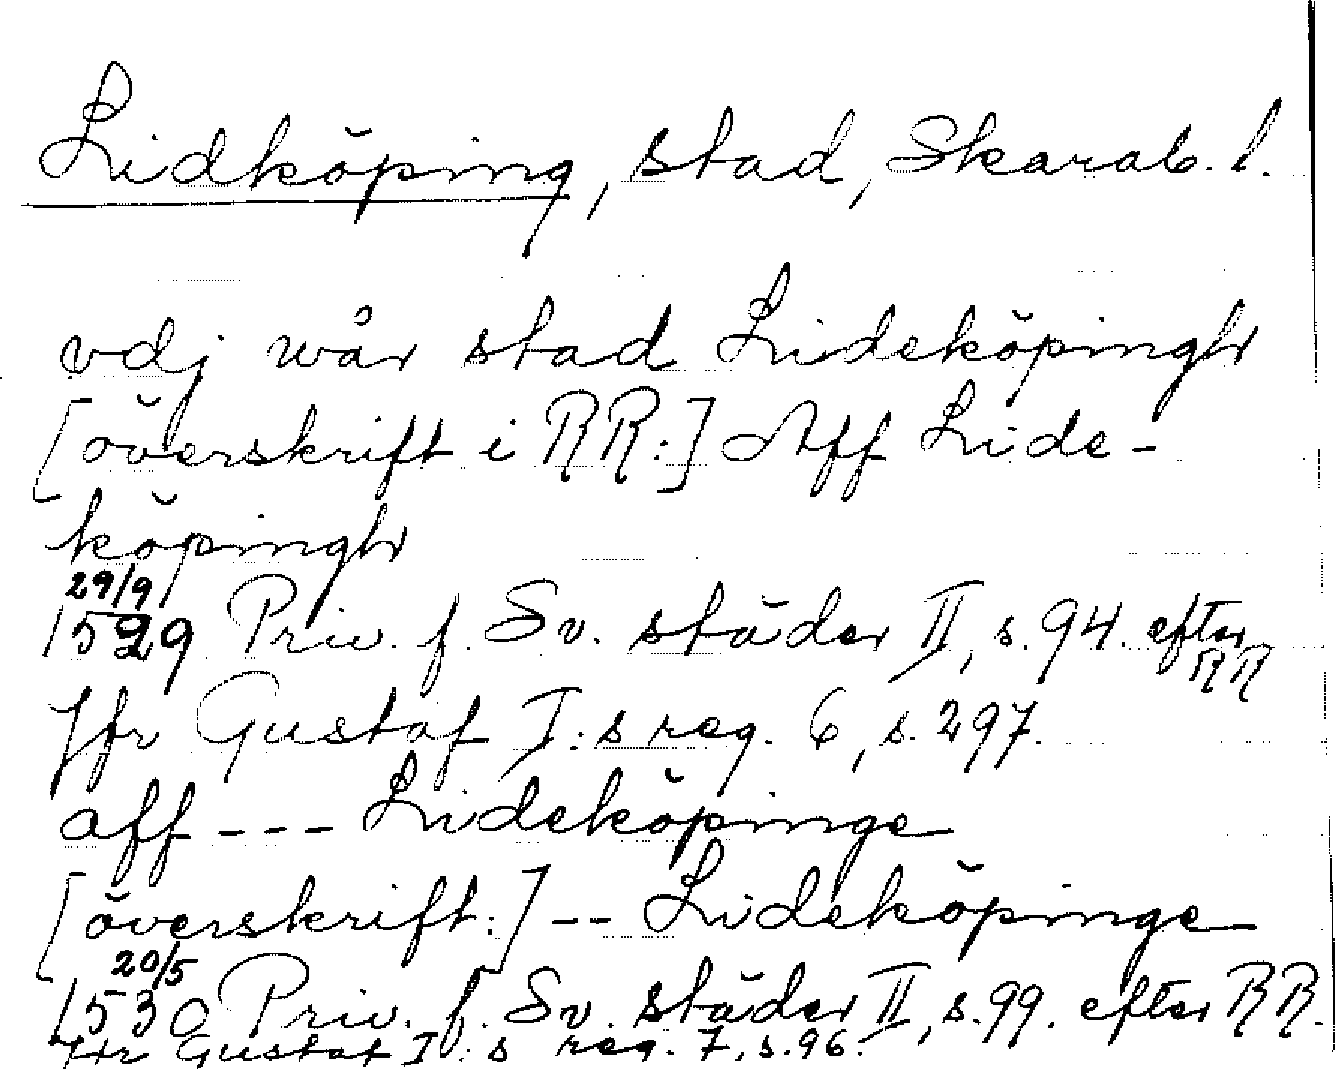 Lidköping, stad, Skarab. l.
vdj wår stad Lideköpingh
[överskrift i RR:] Aff Lide-
köpingh
29/9
1529 Priv. f. Sv. städer II, s. 94. efter
RR
Jfr Gustaf I:s reg. 6, s. 297.
aff --- Lideköpinge
[överskrift:] -- Lideköpinge
20/5
1530 Priv. f. Sv. städer II, s. 99. efter RR.
Jfr Gustaf I:s reg. 7, s. 96.